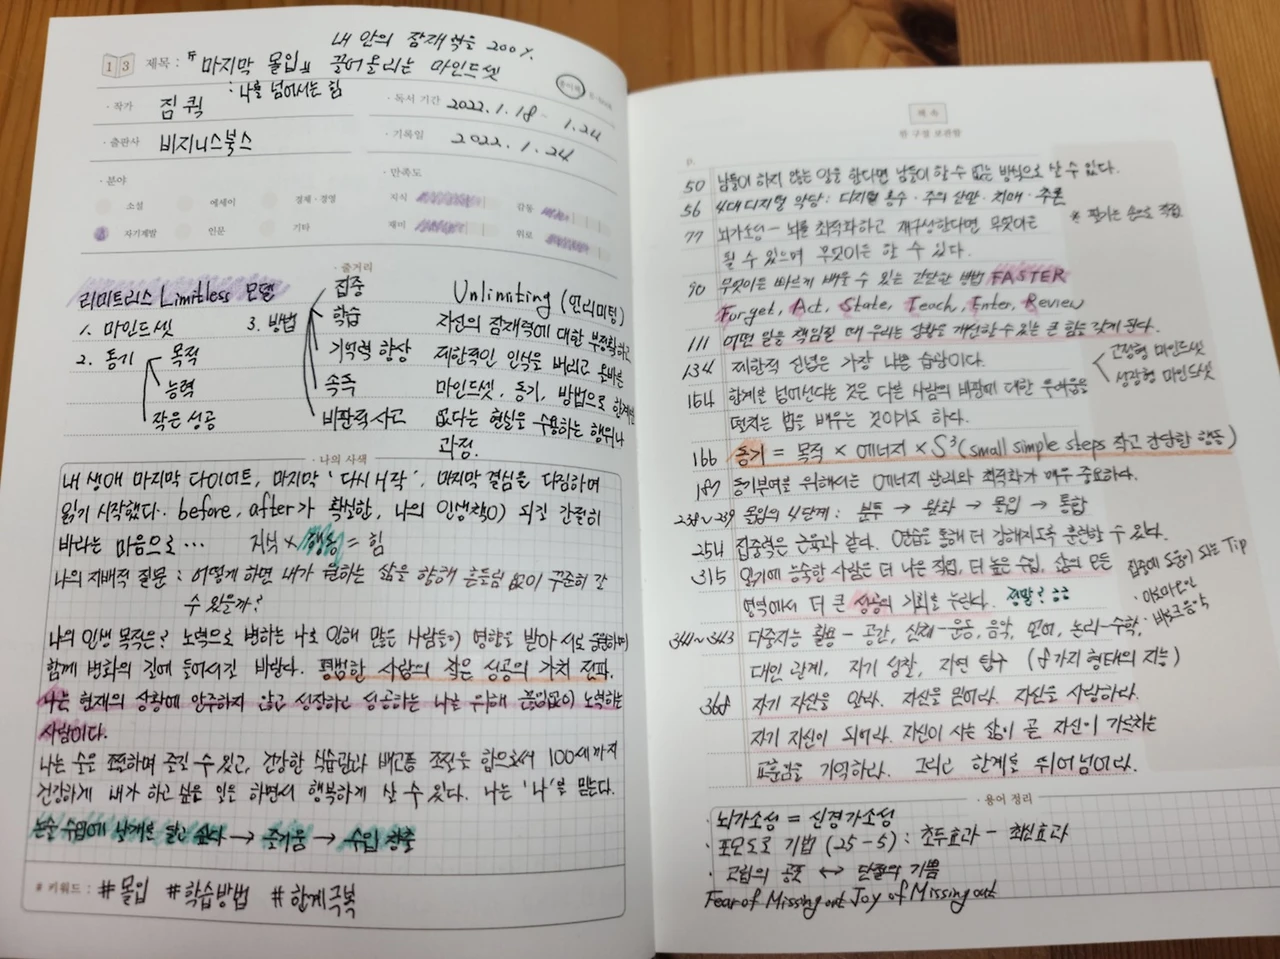 13 제목 : "마지막 몰입" 내 안의 잠재력을 200%
끌어올리는 마인드셋
: 나를 넘어서는 힘
종이책 E-book
· 작가 짐 퀵
· 독서 기간 2022.1.18 - 1.24
· 출판사 비지니스북스
· 기록일 2022.1.24
· 분야
소설 에세이 경제·경영
자기계발 인문 기타
· 만족도
지식 감동
재미 위로
· 줄거리
리미트리스 Limitless 모델
1. 마인드셋 3. 방법
2. 동기
목적
능력
작은 성공
집중
학습
기억력 향상
속독
비판적 사고
Unlimiting (언리미팅)
자신의 잠재력에 대한 부정확하고
제한적인 인식을 버리고 올바른
마인드셋, 동기, 방법으로 한계란
없다는 현실을 수용하는 행위나
과정.
· 나의 사색
내 생애 마지막 다이어트, 마지막 '다시 시작', 마지막 결심을 다짐하며
읽기 시작했다. before, after가 확실한, 나의 인생책이 되길 간절히
바라는 마음으로... 지식 × 행동 = 힘
나의 지배적 질문 : 어떻게 하면 내가 원하는 삶을 향해 흔들림 없이 꾸준히 갈
수 있을까?
나의 인생 목적은? 노력으로 변하는 나로 인해 많은 사람들이 영향을 받아 서로
함께 변화의 길에 들어서길 바란다. 평범한 사람의 작은 성공의 가치 전파.
나는 현재의 상황에 안주하지 않고 성장하고 성공하는 나를 위해 끊임없이 노력하는
사람이다.
나는 술은 조절하며 즐길 수 있고, 건강한 식습관과 배고픔 조절을 함으로써 100세까지
건강하게 내가 하고 싶은 일을 하면서 행복하게 살 수 있다. 나는 '나'를 믿는다.
논술 수업에 날개를 달고 싶다 → 즐거움 → 수입 창출
# 키워드 : #몰입 #학습방법 #한계극복
책 속
한 구절 보관함
p.
50 남들이 하지 않는 일을 한다면 남들이 할 수 없는 방식으로 살 수 있다.
56 4대 디지털 악당 : 디지털 홍수 · 주의 산만 · 치매 · 추론
* 필기는 손으로 직접
77 뇌가소성 - 뇌를 최적화하고 재구성한다면 무엇이든
될 수 있으며 무엇이든 할 수 있다.
90 무엇이든 빠르게 배울 수 있는 간단한 방법 FASTER
Forget, Act, State, Teach, Enter, Review
111 어떤 일을 책임질 때 우리는 상황을 개선할 수 있는 큰 힘을 갖게 된다.
134 제한적 신념은 가장 나쁜 습관이다.
고정형 마인드셋
성장형 마인드셋
154 한계를 넘어선다는 것은 다른 사람의 비판에 대한 두려움을
떨치는 법을 배우는 것이기도 하다.
166 동기 = 목적 × 에너지 × S³ (small simple steps 작고 간단한 행동)
187 동기부여를 위해서는 에너지 관리와 최적화가 매우 중요하다.
238~239 몰입의 4단계 : 분투 → 완화 → 몰입 → 통합
254 집중력은 근육과 같다. 연습을 통해 더 강해지도록 훈련할 수 있다.
315 읽기에 능숙한 사람은 더 나은 직업, 더 높은 수입, 삶의 모든
영역에서 더 큰 성공의 기회를 누린다. 정말? ㅎㅎ
집중에 도움이 되는 Tip
· 아로마오일
· 바로크음악
341~343 다중지능 활용 - 공간, 신체-운동, 음악, 언어, 논리-수학,
대인 관계, 자기 성찰, 자연 탐구 (8가지 형태의 지능)
368 자기 자신을 알라. 자신을 믿어라. 자신을 사랑하라.
자기 자신이 되어라. 자신이 사는 삶이 곧 자신이 가르치는
교훈임을 기억하라. 그리고 한계를 뛰어넘어라.
· 용어 정리
· 뇌가소성 = 신경가소성
· 포모도로 기법 (25-5) : 초두효과 - 최신효과
· 고립의 공포 ↔ 단절의 기쁨
Fear of Missing out Joy of Missing out